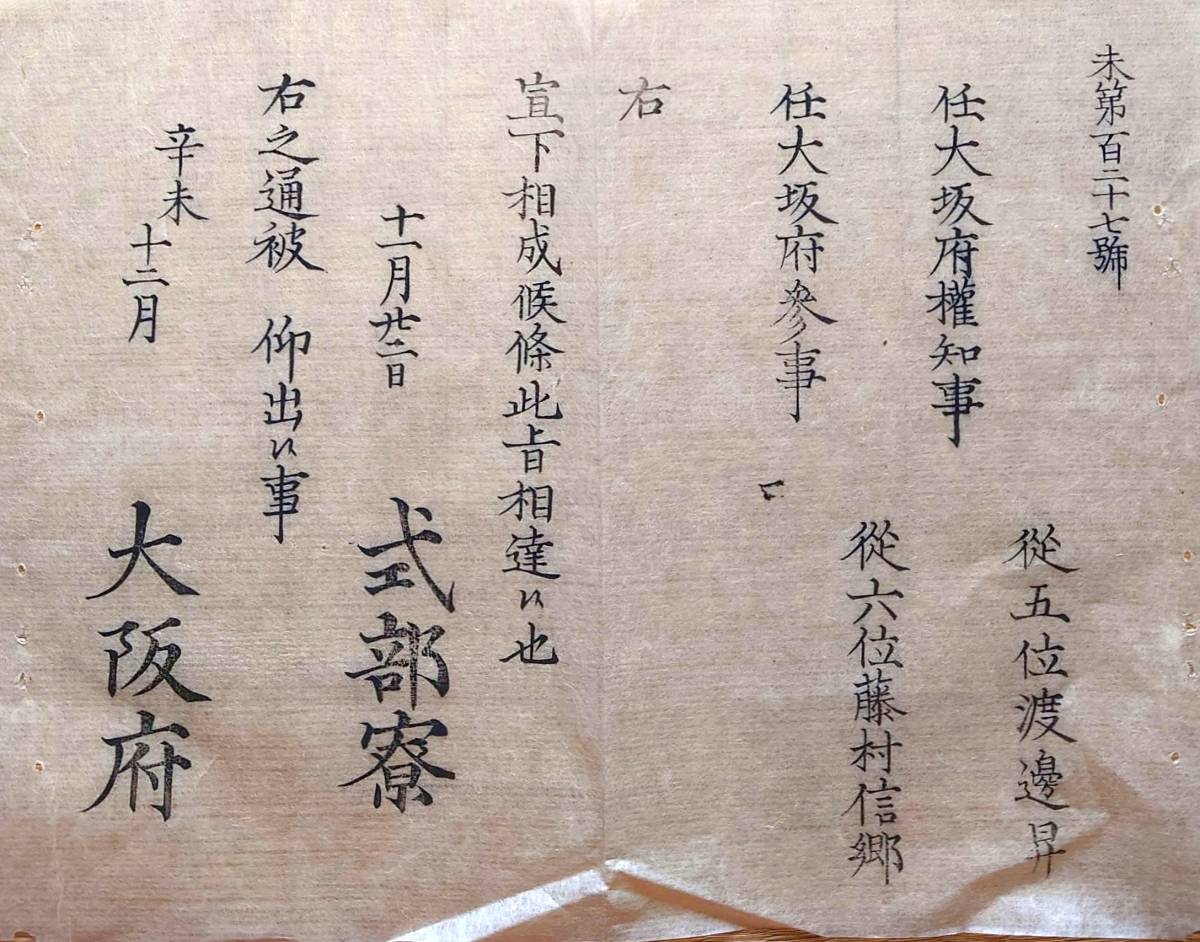 未第百二十七號
從五位渡邊昇
任大坂府權知事
從六位藤村信郷
任大坂府參事
右
宣下相成候條此旨相達候也
十一月廿二日
式部寮
右之通被 仰出候事
辛未
十二月
大阪府